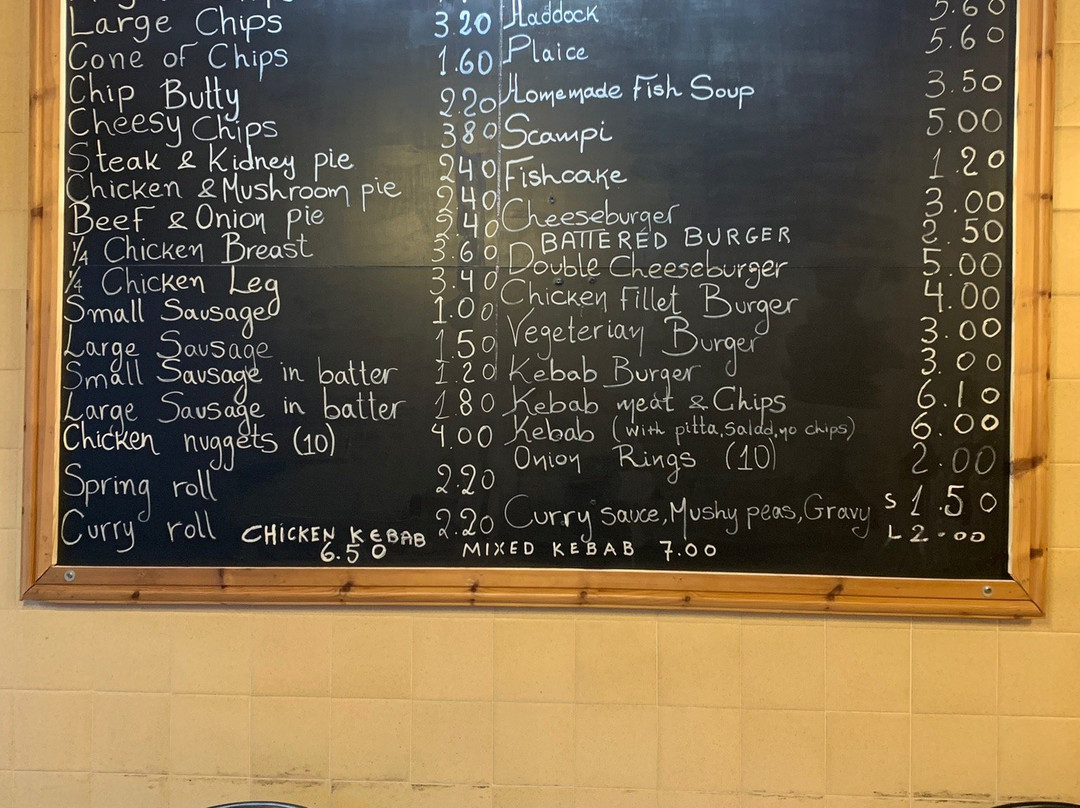 Large Chips 3.20
Cone of Chips 1.60
Chip Butty 2.20
Cheesy Chips 3 80
Steak & Kidney pie 2 40
Chicken & Mushroom pie 2.40
Beef & Onion pie 2.40
1/4 Chicken Breast 3.60
1/4 Chicken Leg 3.40
Small Sausaged 1.00
Large Sausage 1.50
Small Sausage in batter 1.20
Large Sausage in batter 1.80
Chicken nuggets (10) 4.00
Spring roll 2.20
Curry roll 2.20
CHICKEN KEBAB
6.50
MIXED KEBAB 7.00
Haddock 5.60
Plaice 5.60
Homemade Fish Soup 3.50
Scampi 5.00
Fishcake 1.20
Cheeseburger 3.00
BATTERED BURGER 2.50
Double Cheeseburger 5.00
Chicken Fillet Burger 4.00
Vegeterian Burger 3.00
Kebab Burger 3.00
Kebab meat & Chips 6.10
Kebab (with pitta, salad, no chips) 6.00
Onion Rings (10) 2.00
Curry sauce, Mushy peas, Gravy S 1.50
L 2.00